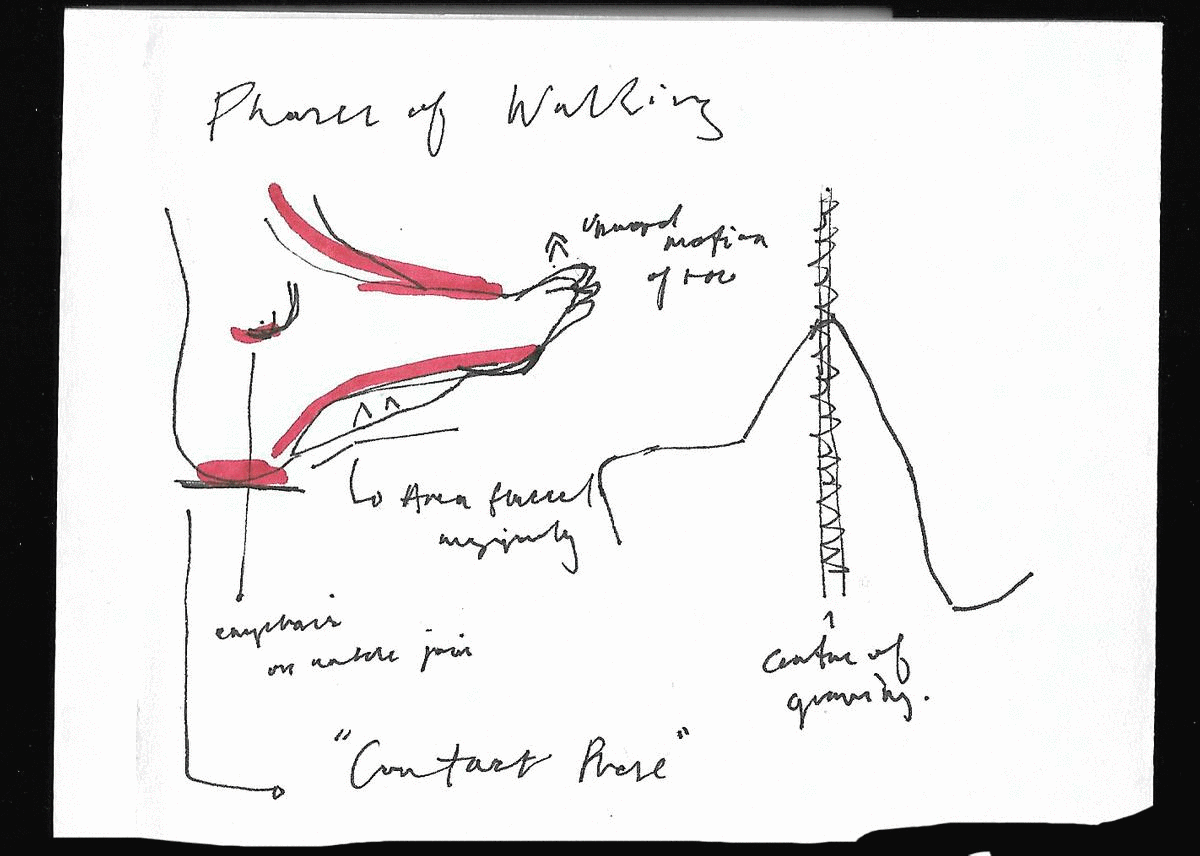 Phases of Walking
upward
motion
of toe
Area flexed
emphasis
on ankle join
centre of
gravity.
"Contact Phase"